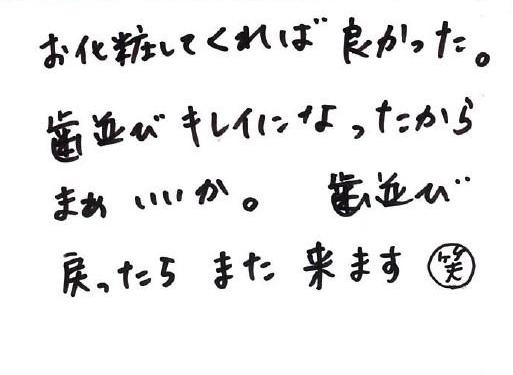 お化粧してくれば 良かった。
歯並び キレイになったから
まぁ いいか。 歯並び
戻ったら また 来ます ㊗